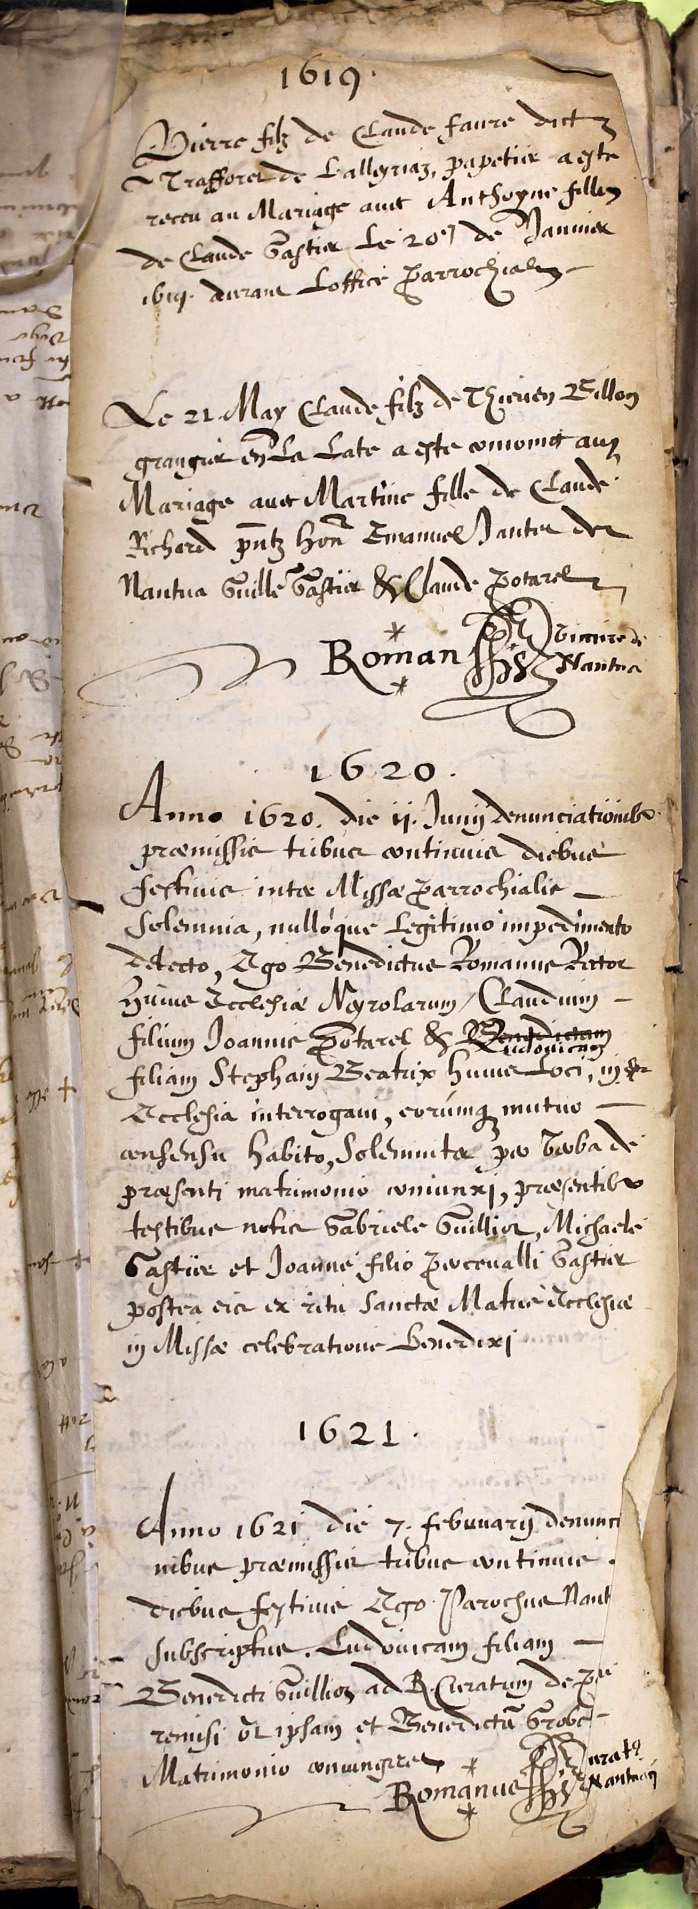 1619.
Pierre filz de Claude Faure dict
Trafforet de Lalleyriaz, papetier a este
receu au Mariage avec Anthoyne fille
de Claude Gastier Le 20e de Janvier
1619. durant Loffice Parrochial
Le 21 May Claude filz de Thieven Billon
grangier en La Late a este conioinct au
Mariage avec Martine fille de Claude
Richard pntz hon Emanuel Jantet de
Nantua Guille Gastier & Claude Potarel
Roman Vicaire de
Nantua
1620.
Anno 1620. die ii. Junij denunciationib9
præmissis tribus continuis diebus
festivis inter Missæ Parrochialis
solemnia, nulloque Legitimo impedimento
detecto, Ego Benedictus Romanus Rector
huius Ecclesiæ Neyrolarum, Claudium
filium Joannis Potarel & Benedictam
Ludovicam
filiam Stephani Beatrix huius Loci, in
Ecclesia interrogavi, eorumq mutuo
consensu habito, Solemniter per verba de
præsenti matrimonio coniunxi, præsentibus
testibus notis Gabriele Guillior, Michaele
Gastier et Joanne filio Percevalli Gastier
postea eis ex ritu Sanctæ Matris Ecclesiæ
in Missæ celebratione Benedixi
1621.
Anno 1621 die 7. februarij denunci
nibus præmissis tribus continuis
diebus festivis Ego Parochus Nant
subscriptus. Ludovicam filiam
Benedicti Guillior ad R. Curatum de
remisi ut ipsam et Benedictu Grobe
Matrimonio coniungeret
Romanus Curat9
Nantuaci